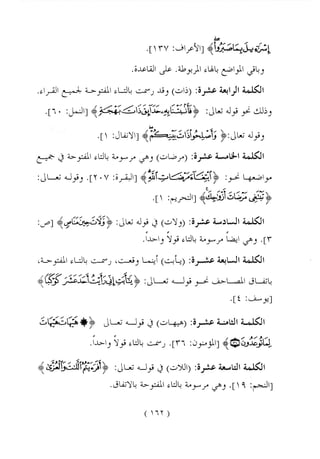 إِسْرَٰٓءِيلَ بِمَا صَبَرُوا۟ ﴾ [الأعراف: ١٣٧].
وباقي المواضع بالهاء المربوطة. على القاعدة.
الكلمة الرابعة عشرة: (ذات) وقد رسمت بالتاء المفتوحة لجميع القراء.
وذلك نحو قوله تعالى: ﴿ فَأَنۢبَتْنَا بِهِۦ حَدَآئِقَ ذَاتَ بَهْجَةٍ ﴾ [النمل: ٦٠].
وقوله تعالى: ﴿ وَأَصْلِحُوا۟ ذَاتَ بَيْنِكُمْ ﴾ [الانفال: ١].
الكلمة الخامسة عشرة: (مرضات) وهي مرسومة بالتاء المفتوحة في جميع
مواضعها نحو: ﴿ ٱبْتِغَآءَ مَرْضَاتِ ٱللَّهِ ﴾ [البقرة: ٢٠٧]. وقوله تعالى:
﴿ تَبْتَغِى مَرْضَاتَ أَزْوَٰجِكَ ﴾ [التحريم: ١].
الكلمة السادسة عشرة: (ولات) في قوله تعالى: ﴿ وَّلَاتَ حِينَ مَنَاصٍ ﴾ [ص:
٣]. وهي ايضاً مرسومة بالتاء قولاً واحداً.
الكلمة السابعة عشرة: (يأبت) أينما وقعت، رسمت بالتاء المفتوحة،
باتفاق المصاحف نحو قوله تعالى: ﴿ يَٰٓأَبَتِ إِنِّى رَأَيْتُ أَحَدَ عَشَرَ كَوْكَبًا ﴾
[يوسف: ٤].
الكلمة الثامنة عشرة: (هيهات) في قوله تعالى ﴿ ۞ هَيْهَاتَ هَيْهَاتَ
لِمَا تُوعَدُونَ ۝ ﴾ [المؤمنون: ٣٦]. رسمت بالتاء قولاً واحداً.
الكلمة التاسعة عشرة: (اللات) في قوله تعالى: ﴿ أَفَرَءَيْتُمُ ٱللَّٰتَ وَٱلْعُزَّىٰ ﴾
[النجم: ١٩]. وهي مرسومة بالتاء المفتوحة بالاتفاق.
(١٦٢)